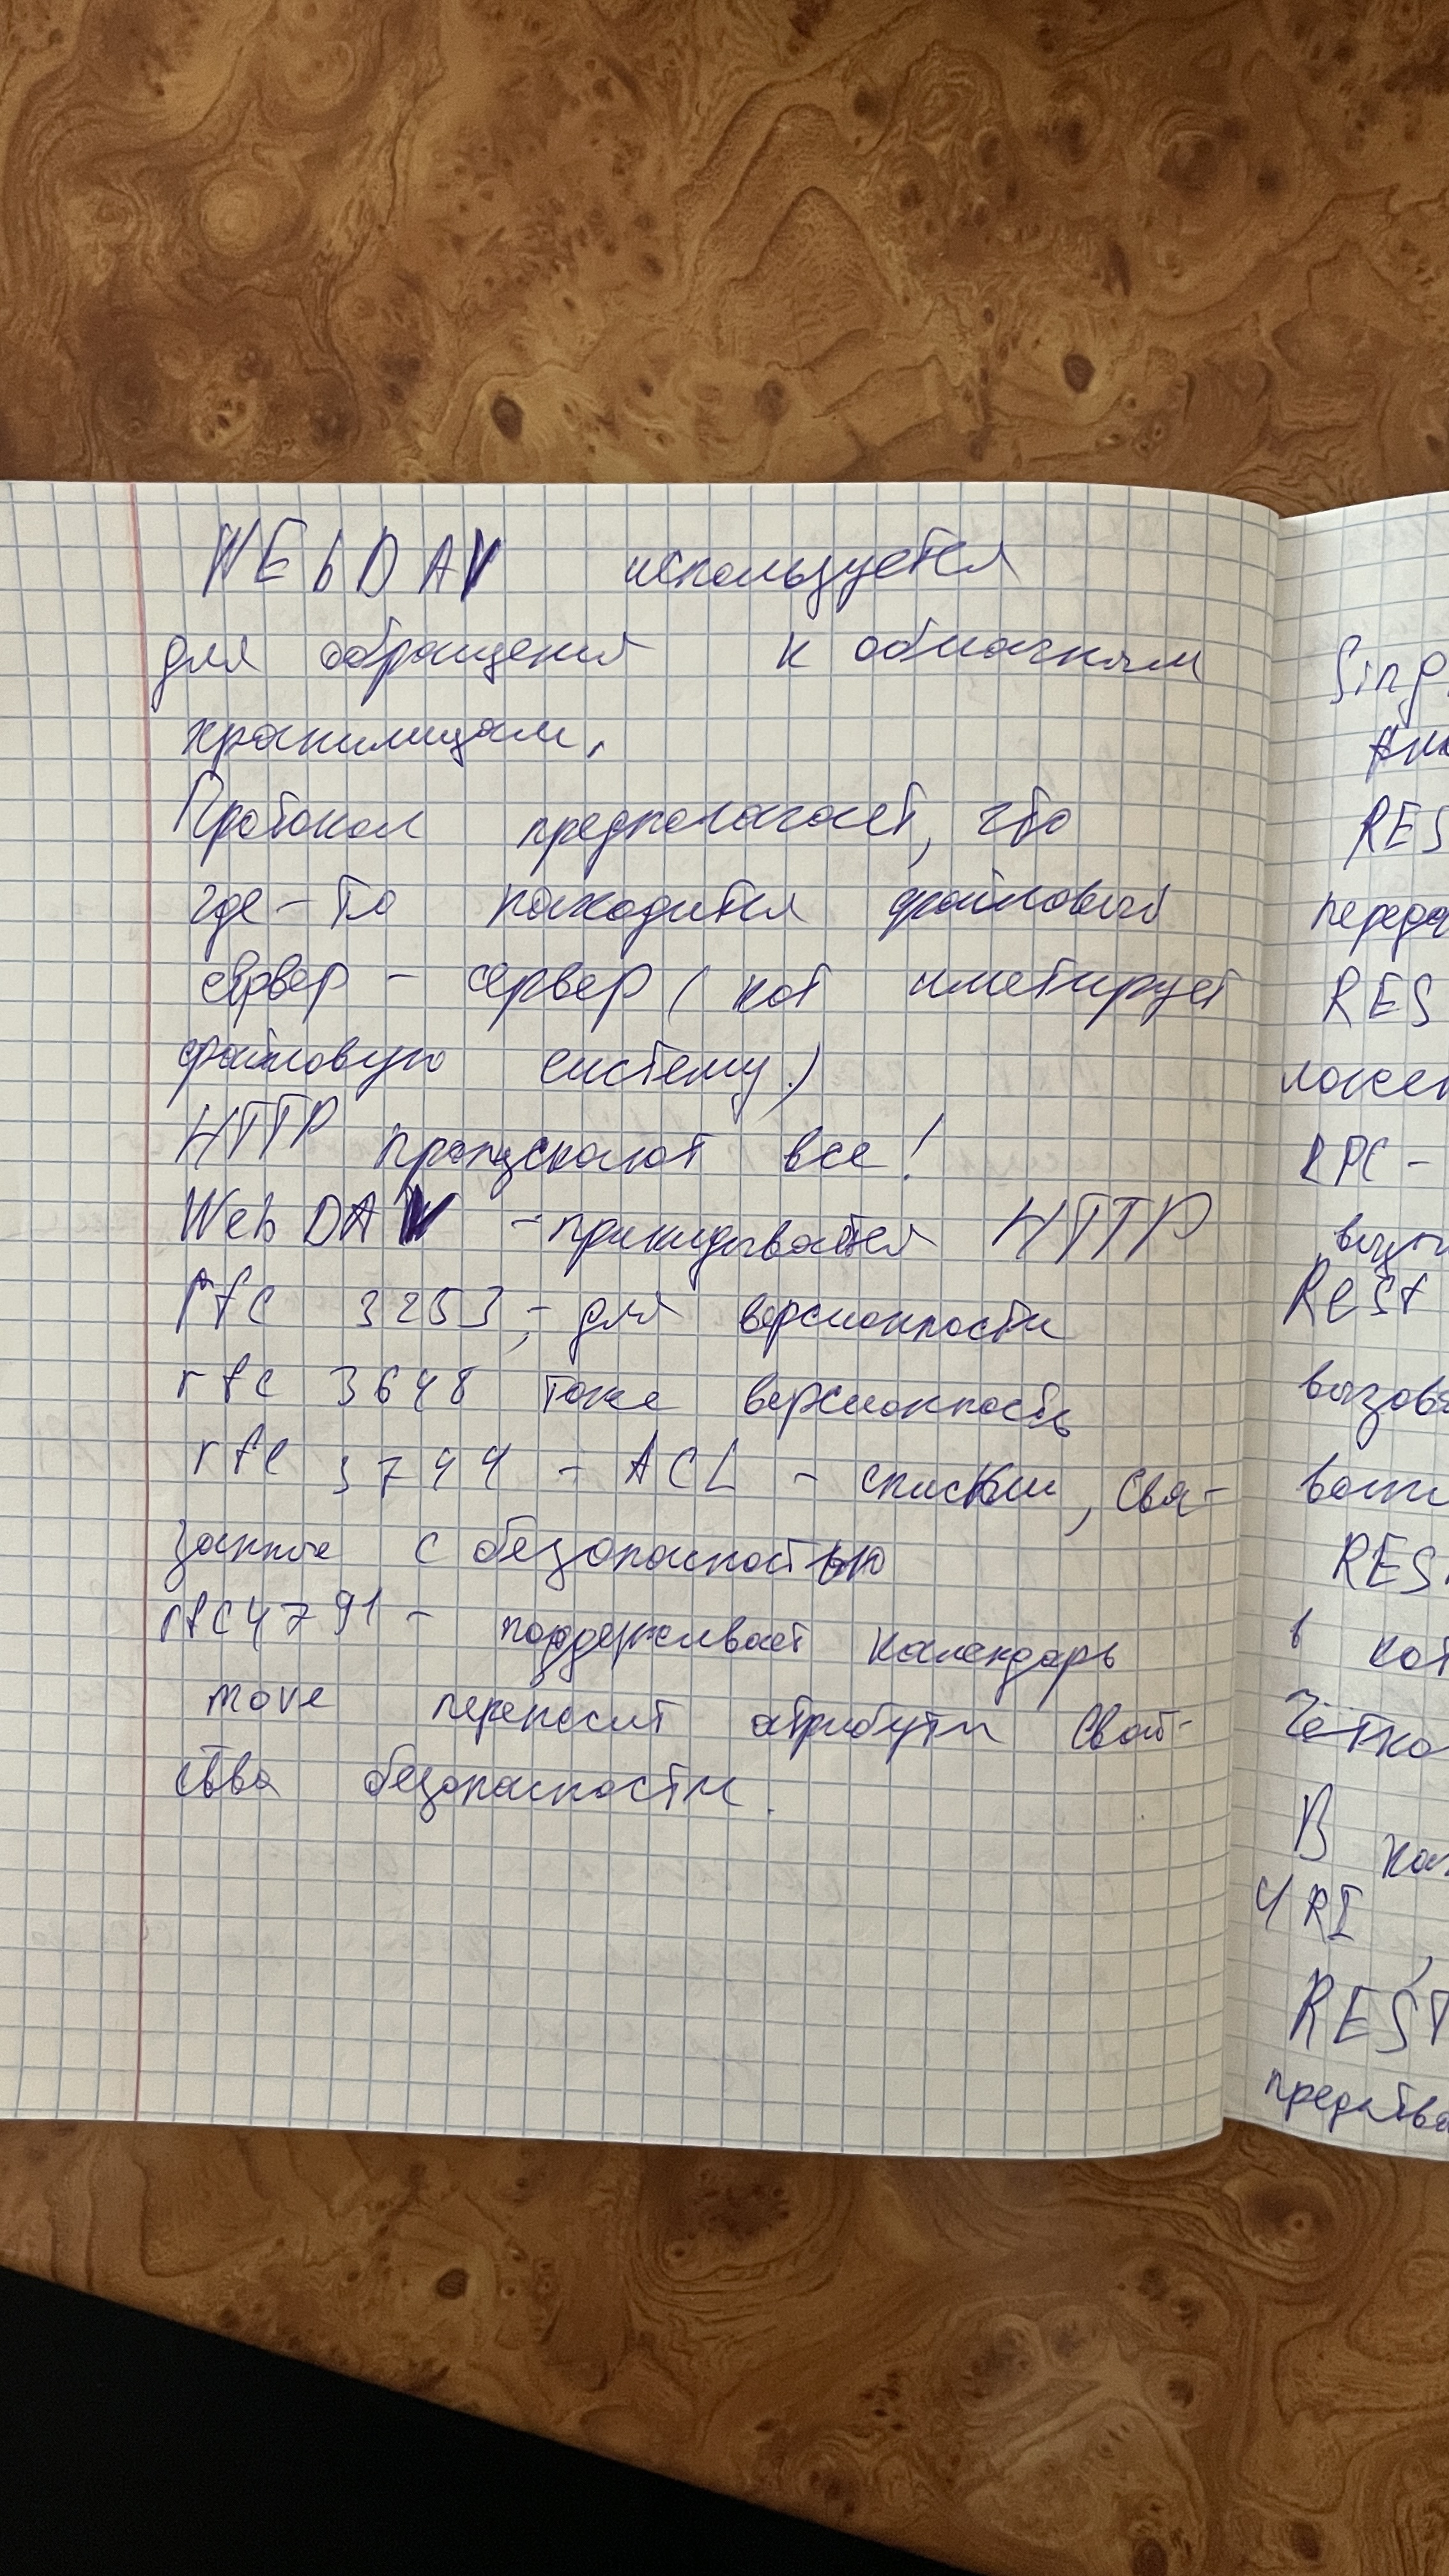 WEbDAV используется
для обращения к облачным
хранилищам.
Протокол предполагает, что
где-то находится файловый
сервер - сервер (кот иметирует
файловую систему)
HTTP пропускают все!
WebDAV - прикидывается HTTP
rfc 3253, - для версионности
rfc 3648 тоже версионность
rfc 3744 - ACL - списки, свя-
занные с безопасностью
rfc4791 - поддерживает календарь
move переносит атрибуты свой-
ства безопасности.
Sing
RES
переда
RES
ложен
RPC -
Rest
вызов
RES
в кот
Чётко
В
URI,
REST